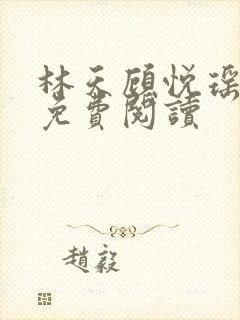 林天顾悦瑶
免費閱讀
趙毅